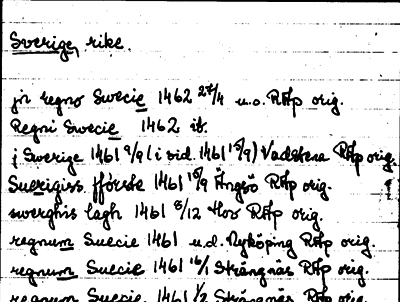 Sverige, rike.
jn regno Swecie 1462 27/4 u.o. RAp orig.
Regni Swecie 1462 ib.
j Swerige 1461 9/9 (i sid. 1461 15/9) Vadstena RAp orig.
Suerigiss fförste 1461 15/9 Ängsö RAp orig.
swerghis lagh 1461 8/12 Hov RAp orig.
regnum Suecie 1461 u.d. Nyköping RAp orig.
regnum Suecie 1461 16/1 Strängnäs RAp orig.
regnum Suecie 1461 1/2 Strängnäs RAp orig.